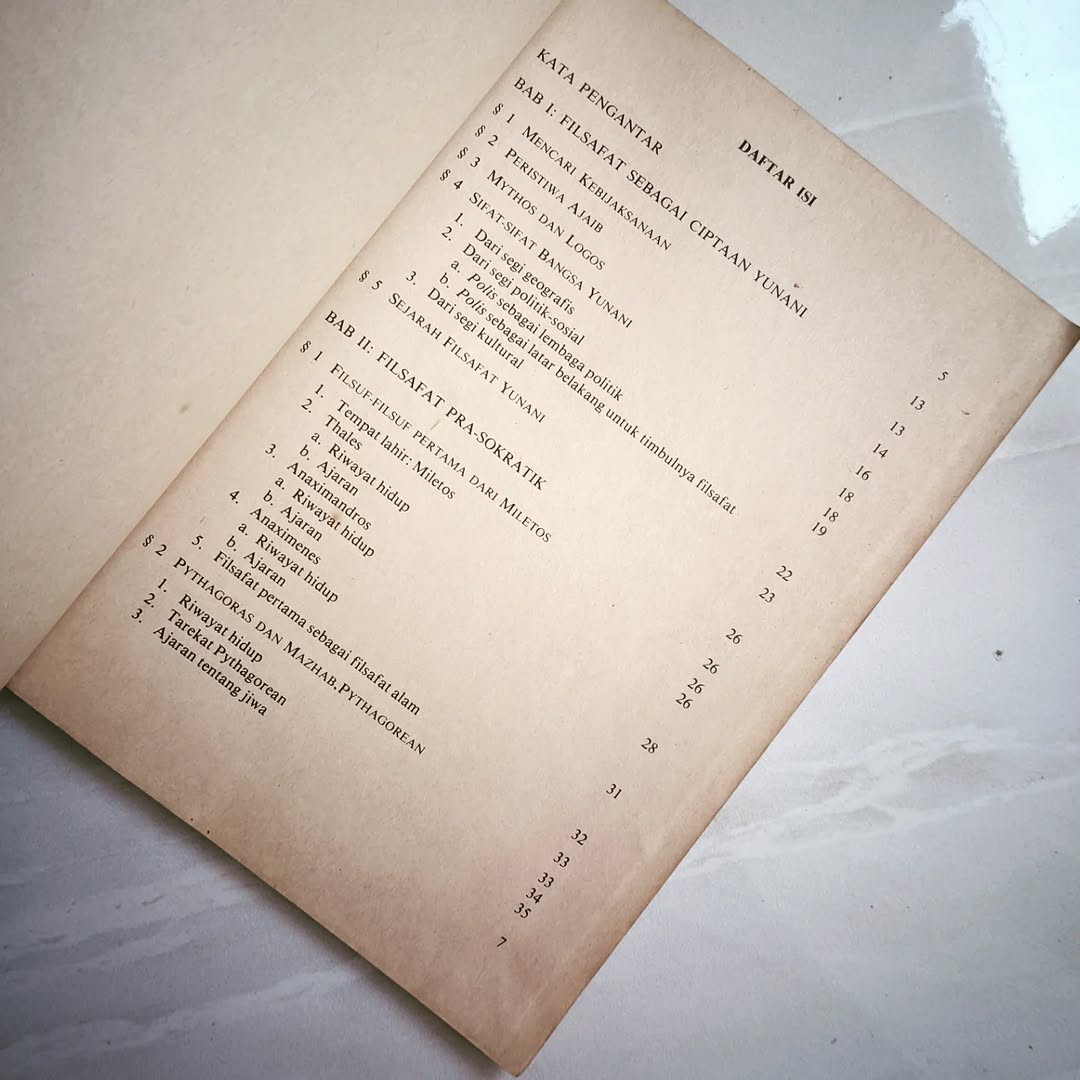 DAFTAR ISI
KATA PENGANTAR 5
BAB I: FILSAFAT SEBAGAI CIPTAAN YUNANI 13
§ 1 MENCARI KEBIJAKSANAAN 13
§ 2 PERISTIWA AJAIB 14
§ 3 MYTHOS DAN LOGOS 16
§ 4 SIFAT-SIFAT BANGSA YUNANI 18
1. Dari segi geografis 18
2. Dari segi politik-sosial 19
a. Polis sebagai lembaga politik
b. Polis sebagai latar belakang untuk timbulnya filsafat
3. Dari segi kultural 22
§ 5 SEJARAH FILSAFAT YUNANI 23
BAB II: FILSAFAT PRA-SOKRATIK 26
§ 1 FILSUF-FILSUF PERTAMA DARI MILETOS 26
1. Tempat lahir: Miletos 26
2. Thales 26
a. Riwayat hidup
b. Ajaran
3. Anaximandros 28
a. Riwayat hidup
b. Ajaran
4. Anaximenes 31
a. Riwayat hidup
b. Ajaran
5. Filsafat pertama sebagai filsafat alam 32
§ 2 PYTHAGORAS DAN MAZHAB PYTHAGOREAN 33
1. Riwayat hidup 33
2. Tarekat Pythagorean 34
3. Ajaran tentang jiwa 35
7